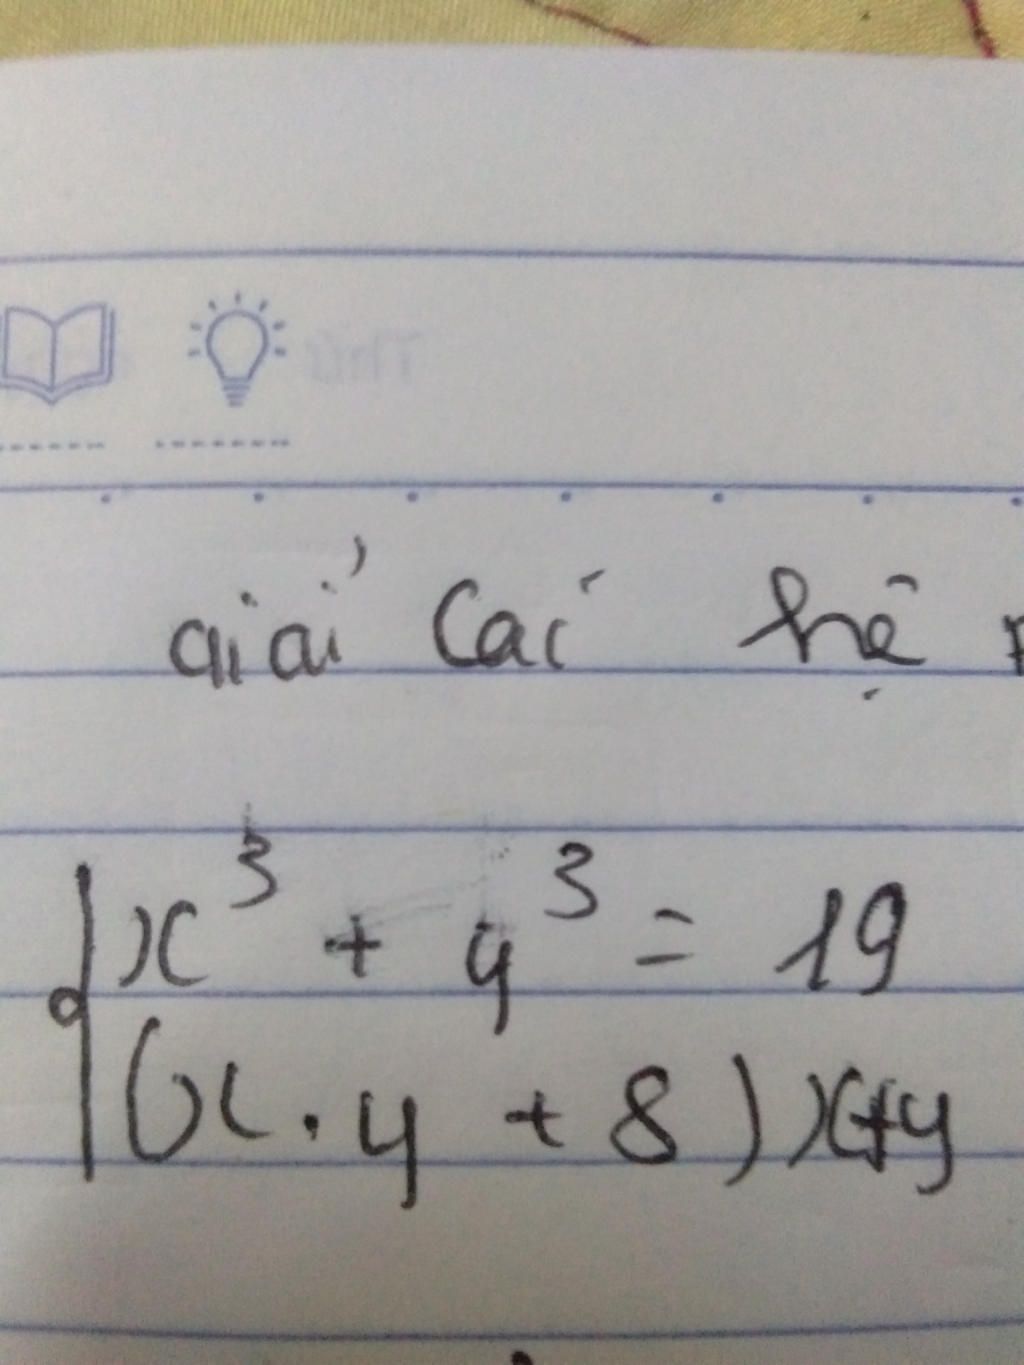 giải các hệ
x³ + y³ = 19
(x . y + 8) x+y